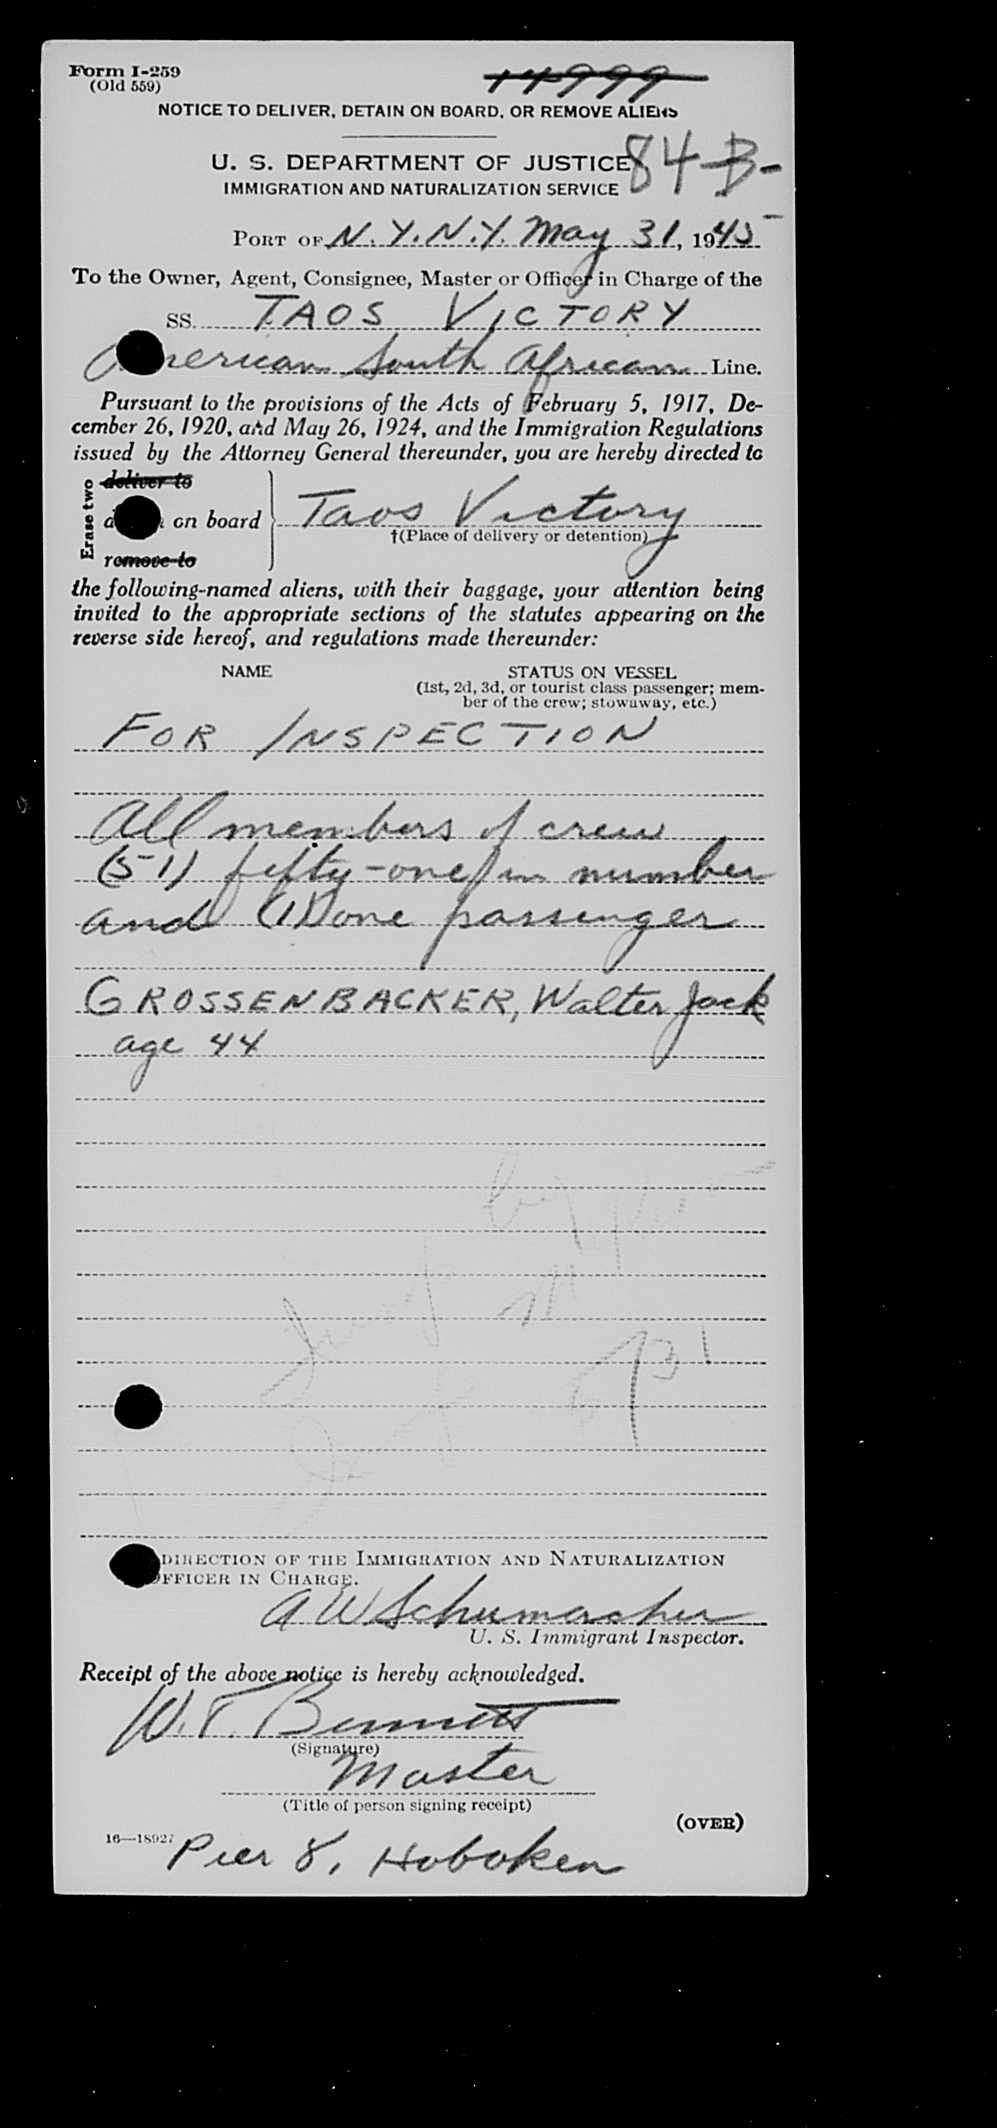 Form I-259
(Old 559)
14999
NOTICE TO DELIVER, DETAIN ON BOARD, OR REMOVE ALIENS
U. S. DEPARTMENT OF JUSTICE
84-B-
IMMIGRATION AND NATURALIZATION SERVICE
PORT OF N.Y.N.Y. May 31, 1945
To the Owner, Agent, Consignee, Master or Officer in Charge of the
SS. TAOS VICTORY
American South African Line.
Pursuant to the provisions of the Acts of February 5, 1917, De-
cember 26, 1920, and May 26, 1924, and the Immigration Regulations
issued by the Attorney General thereunder, you are hereby directed to
Erase two
deliver to
on board Taos Victory
†(Place of delivery or detention)
remove to
the following-named aliens, with their baggage, your attention being
invited to the appropriate sections of the statutes appearing on the
reverse side hereof, and regulations made thereunder:
NAME STATUS ON VESSEL
(1st, 2d, 3d, or tourist class passenger; mem-
ber of the crew; stowaway, etc.)
FOR INSPECTION
All members of crew
(51) fifty-one in number
and (1) one passenger
GROSSENBACKER, Walter Jack
age 44
DIRECTION OF THE IMMIGRATION AND NATURALIZATION
OFFICER IN CHARGE.
A W Schumacher
U. S. Immigrant Inspector.
Receipt of the above notice is hereby acknowledged.
W. T. Bennett
(Signature)
Master
(Title of person signing receipt)
(OVER)
16—18927
Pier 8, Hoboken